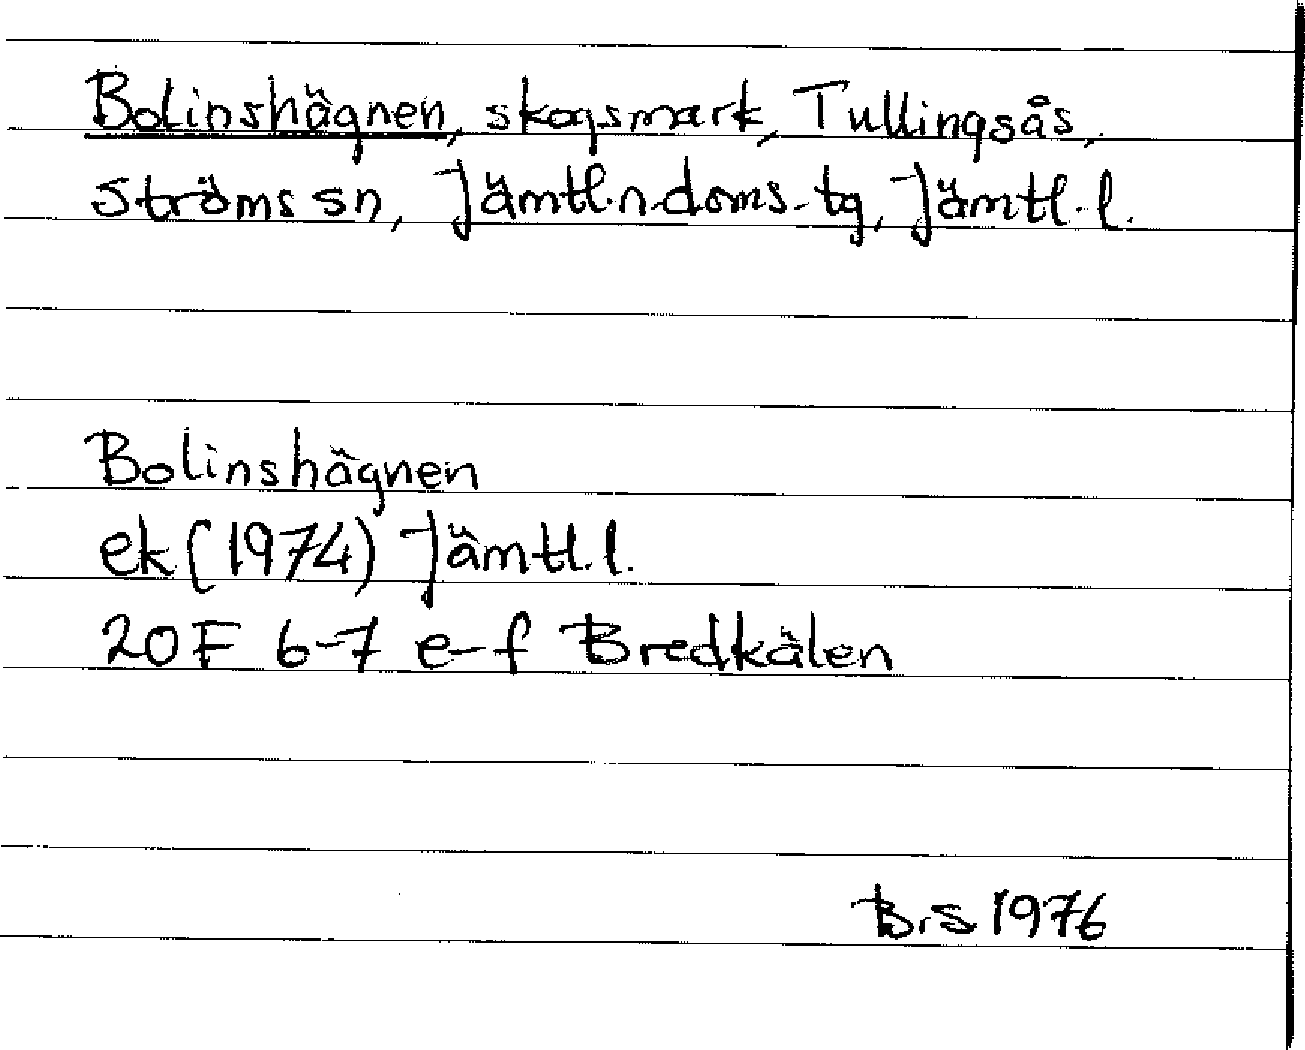 Bolinshägnen, skogsmark, Tullingsås,
Ströms sn, Jämtl.n.doms.tg, Jämtl.l.
Bolinshägnen
ek (1974) Jämtl.l.
20F 6-7 e-f Bredkälen
B.S 1976